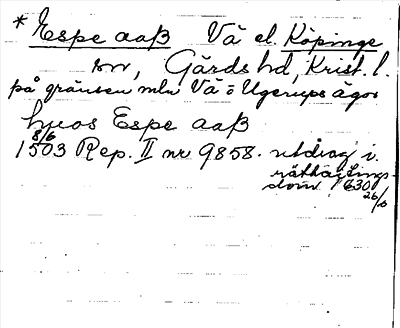 * Espe aaß Vä el. Köpinge
sn, Gärds hd, Krist. l.
på gränsen mln Vä o Ugerups ägor
huos Espe aaß
8/6
1503 Rep. II nr 9858. utdrag i
rättartings-
dom 1630
26/6